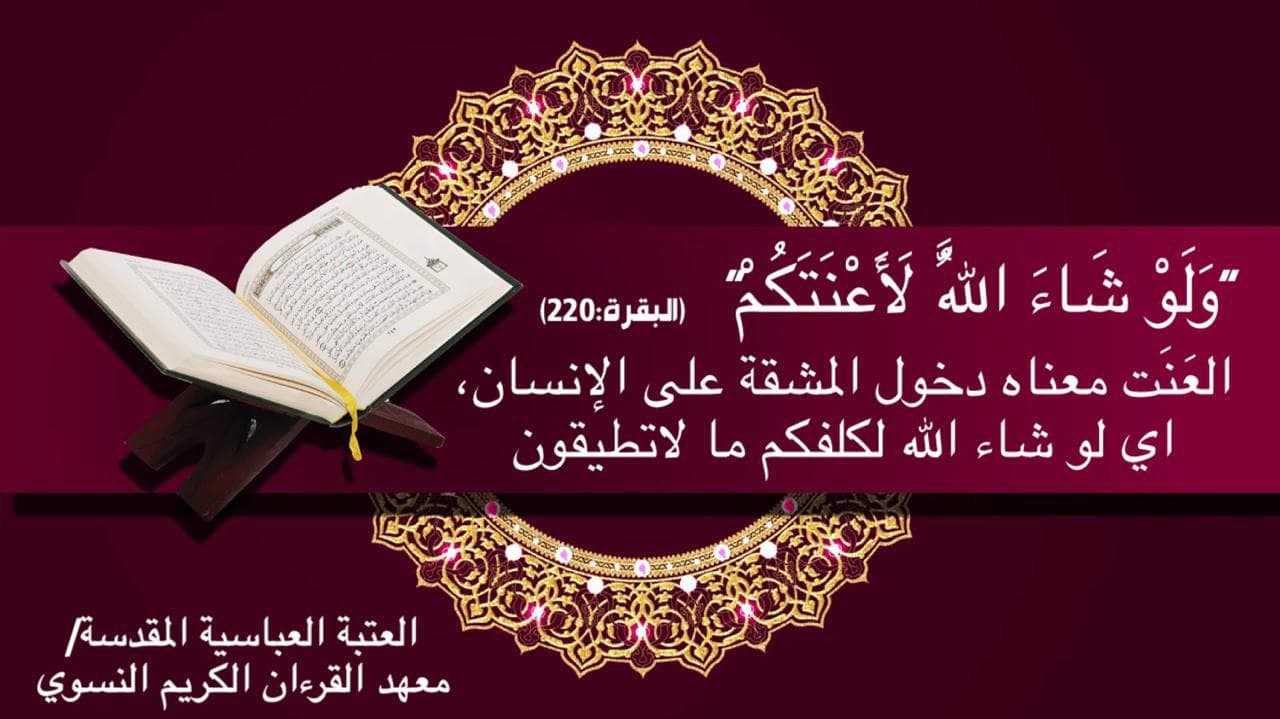 “وَلَوْ شَاءَ اللَّهُ لَأَعْنَتَكُمْ” (البقرة:220)
العَنَت معناه دخول المشقة على الإنسان،
اي لو شاء الله لكلفكم ما لاتطيقون
العتبة العباسية المقدسة/
معهد القرءان الكريم النسوي